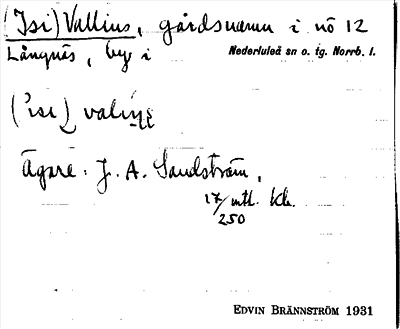 (Isi) Vallius, gårdsnamn i nö 12
Långnäs, by i Nederluleå sn o. tg. Norrb. l.
Ägare: J. A. Sandström,
17/250 mtl. kr.
EDVIN BRÄNNSTRÖM 1931